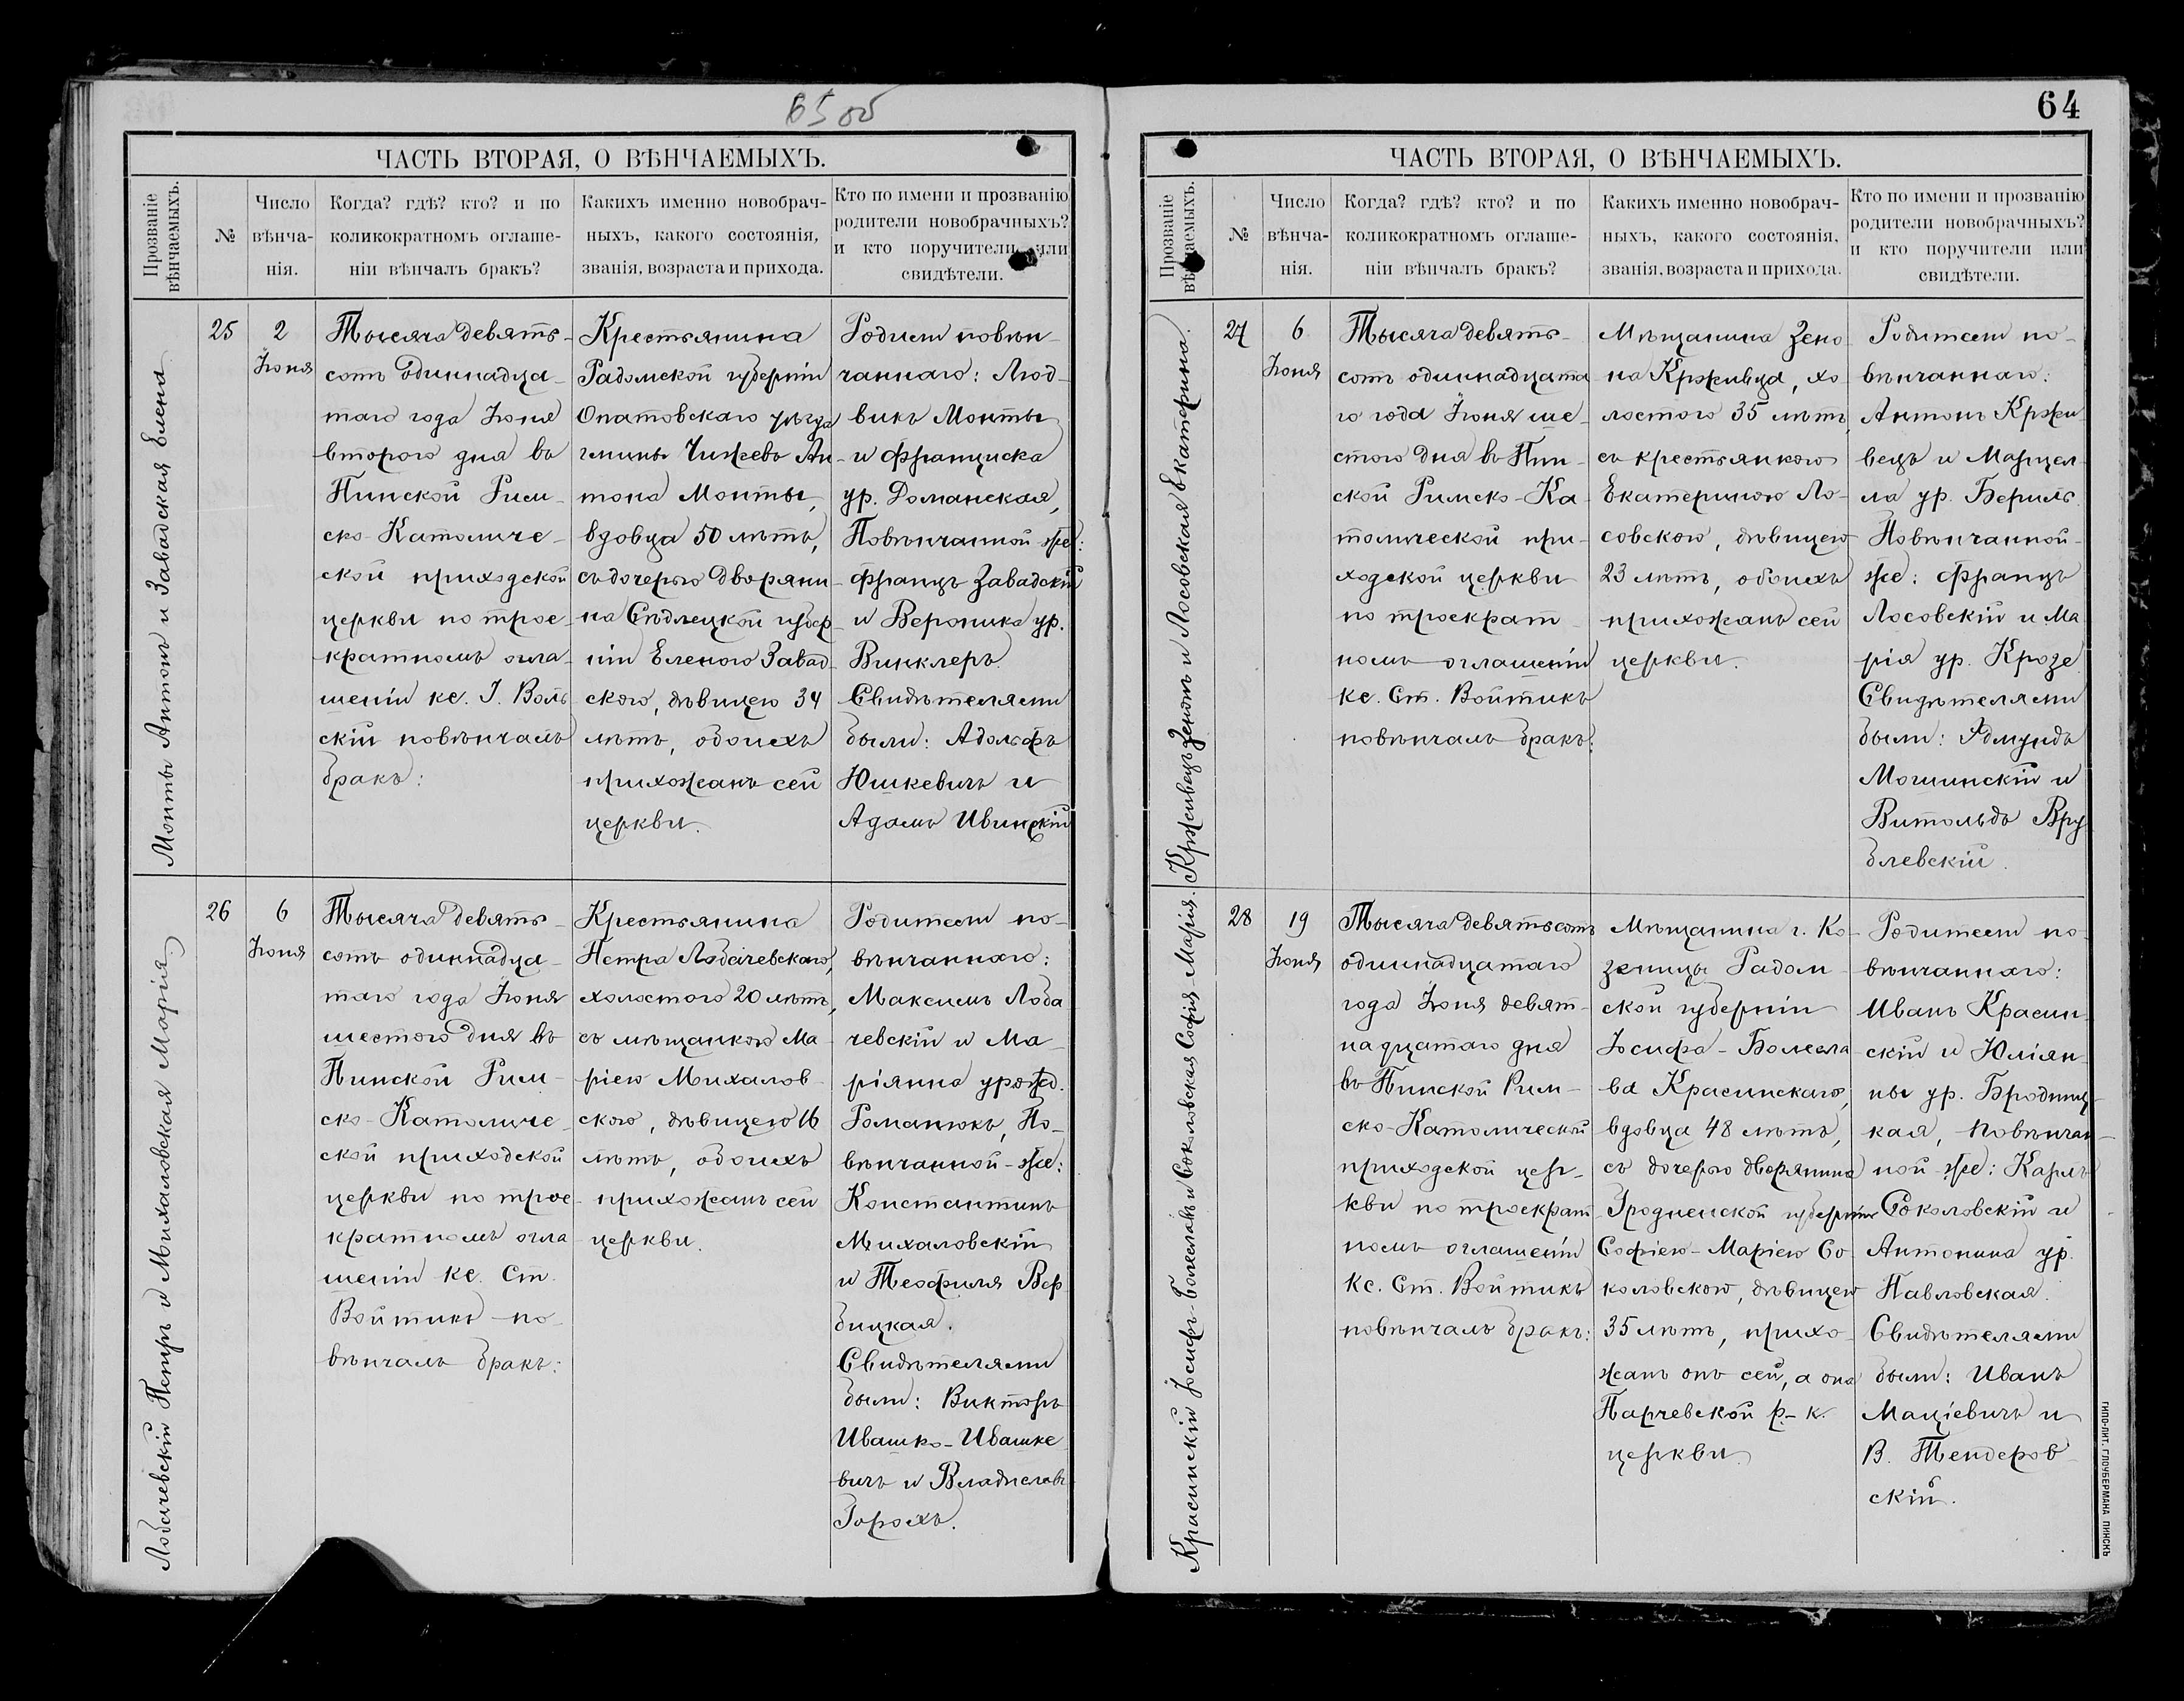 64
ЧАСТЬ ВТОРАЯ, О ВѢНЧАЕМЫХЪ.
Прозваніе
вѣнчаемыхъ.
№
Число
вѣнча-
нія.
Когда? гдѣ? кто? и по
коликократномъ оглаше-
ніи вѣнчалъ бракъ?
Какихъ именно новобрач-
ныхъ, какого состоянія,
званія, возраста и прихода.
Кто по имени и прозванію
родители новобрачныхъ?
и кто поручители или
свидѣтели.
Монты Антонъ и Завадская Елена
25
2
Іюня
Тысяча девять-
сотъ одиннадца-
таго года Іюня
второго дня въ
Пинской Рим-
ско-Католиче-
ской приходской
церкви по трое-
кратномъ огла-
шеніи кс. І. Воль
скій повѣнчалъ
бракъ:
Крестьянина
Радомской губерніи
Опатовскаго уѣзда
гмины Чижевъ Ан-
тона Монты,
вдовца 50 лѣтъ,
съ дочерью дворяни-
на Сѣдлецкой губер-
ніи Еленою Завад-
скою, дѣвицею 34
лѣтъ, обоихъ
прихожанъ сей
церкви.
Родители повѣн-
чаннаго: Люд-
викъ Монты
и Франциска
ур. Доманская,
Повѣнчанной-же:
Францъ Завадскій
и Вероника ур.
Винклеръ.
Свидѣтелями
были: Адольфъ
Юшкевичъ и
Адамъ Ивинскій
Лобачевскій Петръ и Михаловская Марія.
26
6
Іюня
Тысяча девять-
сотъ одиннадца-
таго года Іюня
шестого дня въ
Пинской Рим-
ско-Католиче-
ской приходской
церкви по трое-
кратномъ огла-
шеніи кс. Ст.
Войтикъ по-
вѣнчалъ бракъ:
Крестьянина
Петра Лобачевскаго,
холостого 20 лѣтъ,
съ мѣщанкою Ма-
ріею Михалов-
скою, дѣвицею 16
лѣтъ, обоихъ
прихожанъ сей
церкви.
Родители по-
вѣнчаннаго:
Максимъ Лоба
чевскій и Ма-
ріянна урожд.
Романюкъ, По-
вѣнчанной-же:
Константинъ
Михаловскій
и Теофиля Вер
бицкая.
Свидѣтелями
были: Викторъ
Ивашко-Ивашке
вичъ и Владиславъ
Горохъ.
ЧАСТЬ ВТОРАЯ, О ВѢНЧАЕМЫХЪ.
Прозваніе
вѣнчаемыхъ.
№
Число
вѣнча-
нія.
Когда? гдѣ? кто? и по
коликократномъ оглаше-
ніи вѣнчалъ бракъ?
Какихъ именно новобрач-
ныхъ, какого состоянія,
званія, возраста и прихода.
Кто по имени и прозванію
родители новобрачныхъ?
и кто поручители или
свидѣтели.
Крживецъ Зенонъ и Лосовская Екатерина.
27
6
Іюня
Тысяча девять-
сотъ одиннадцата
го года Іюня ше-
стого дня въ Пин-
ской Римско-Ка-
толической при-
ходской церкви
по троекрат-
номъ оглашеніи
кс. Ст. Войтикъ
повѣнчалъ бракъ:
Мѣщанина Зено
на Крживца, хо-
лостого 35 лѣтъ,
съ крестьянкою
Екатериною Ло-
совскою, дѣвицею
23 лѣтъ, обоихъ
прихожанъ сей
церкви.
Родители по-
вѣнчаннаго:
Антонъ Кржи
вецъ и Марцел-
ла ур. Бериль.
Повѣнчанной-
же: Францъ
Лосовскій и Ма
рія ур. Крозе
Свидѣтелями
были: Эдмундъ
Мошинскій и
Витольдъ Вру
блевскій.
Красинскій Іосифъ-Болеславъ и Соколовская Софія-Марія.
28
19
Іюня
Тысяча девятьсотъ
одиннадцатаго
года Іюня девят-
надцатаго дня
въ Пинской Рим-
ско-Католической
приходской цер-
кви по троекрат-
номъ оглашеніи
Кс. Ст. Войтикъ
повѣнчалъ бракъ:
Мѣщанина г. Ко-
зеницы Радом-
ской губерніи
Іосифа-Болесла-
ва Красинскаго,
вдовца 48 лѣтъ,
съ дочерью дворянина
Гродненской губерніи
Софіею-Маріею Со-
коловскою, дѣвицею
35 лѣтъ, прихо-
жанъ онъ сей, а она
Парчевской р.-к.
церкви.
Родители по-
вѣнчаннаго:
Иванъ Красин-
скій и Юліян-
ны ур. Бродниц-
кая, повѣнчан-
ной-же: Карлъ
Соколовскій и
Антонина ур.
Павловская.
Свидѣтелями
были: Иванъ
Маціевичъ и
В. Тендеров-
скій.
ТИПО-ЛИТ. ГЛОУБЕРМАНА ПИНСКЪ